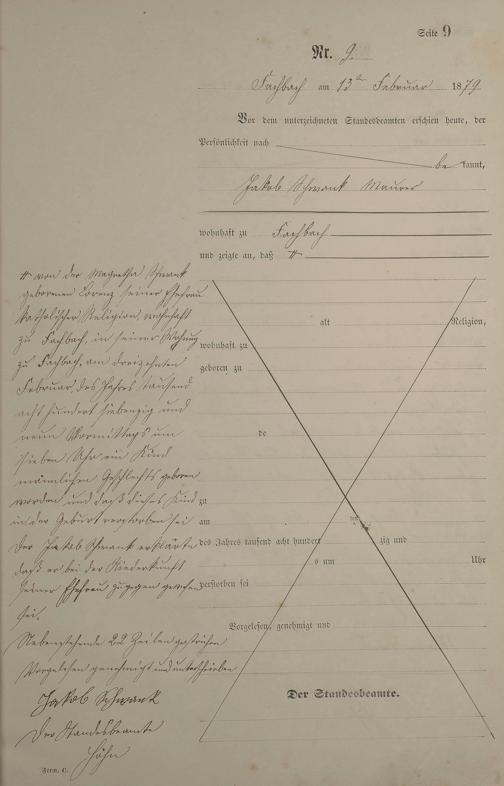 Seite 9
Nr. 9.
Fachbach am 13ten Februar 1879
Vor dem unterzeichneten Standesbeamten erschien heute, der
Persönlichkeit nach
be kannt,
Jakob Schwank Maurer
wohnhaft zu Fachbach
und zeigte an, daß #
# von der Magretha Schwank
geborenen Lorenz seiner Ehefrau
katholischer Religion, wohnhaft
zu Fachbach, in seiner Wohnung
zu Fachbach, am dreizehnten
Februar des Jahres tausend
acht hundert siebenzig und
neun Vormittags um
sieben Uhr ein Kind
männlichen Geschlechts geboren
worden und daß dieses Kind
in der Geburt verstorben sei
Der Jakob Schwank erklärte
daß er bei der Niederkunft
seiner Ehefrau zugegen gewesen
sei.
Nebenstehende 22 Zeilen gestrichen
Vorgelesen genehmigt und unterschrieben
Jakob Schwank
Der Standesbeamte
Höhn
alt Religion,
wohnhaft zu
geboren zu
de
zu
am
des Jahres tausend acht hundert zig und
s um Uhr
verstorben sei
Vorgelesen, genehmigt und
Der Standesbeamte.
Form. C.